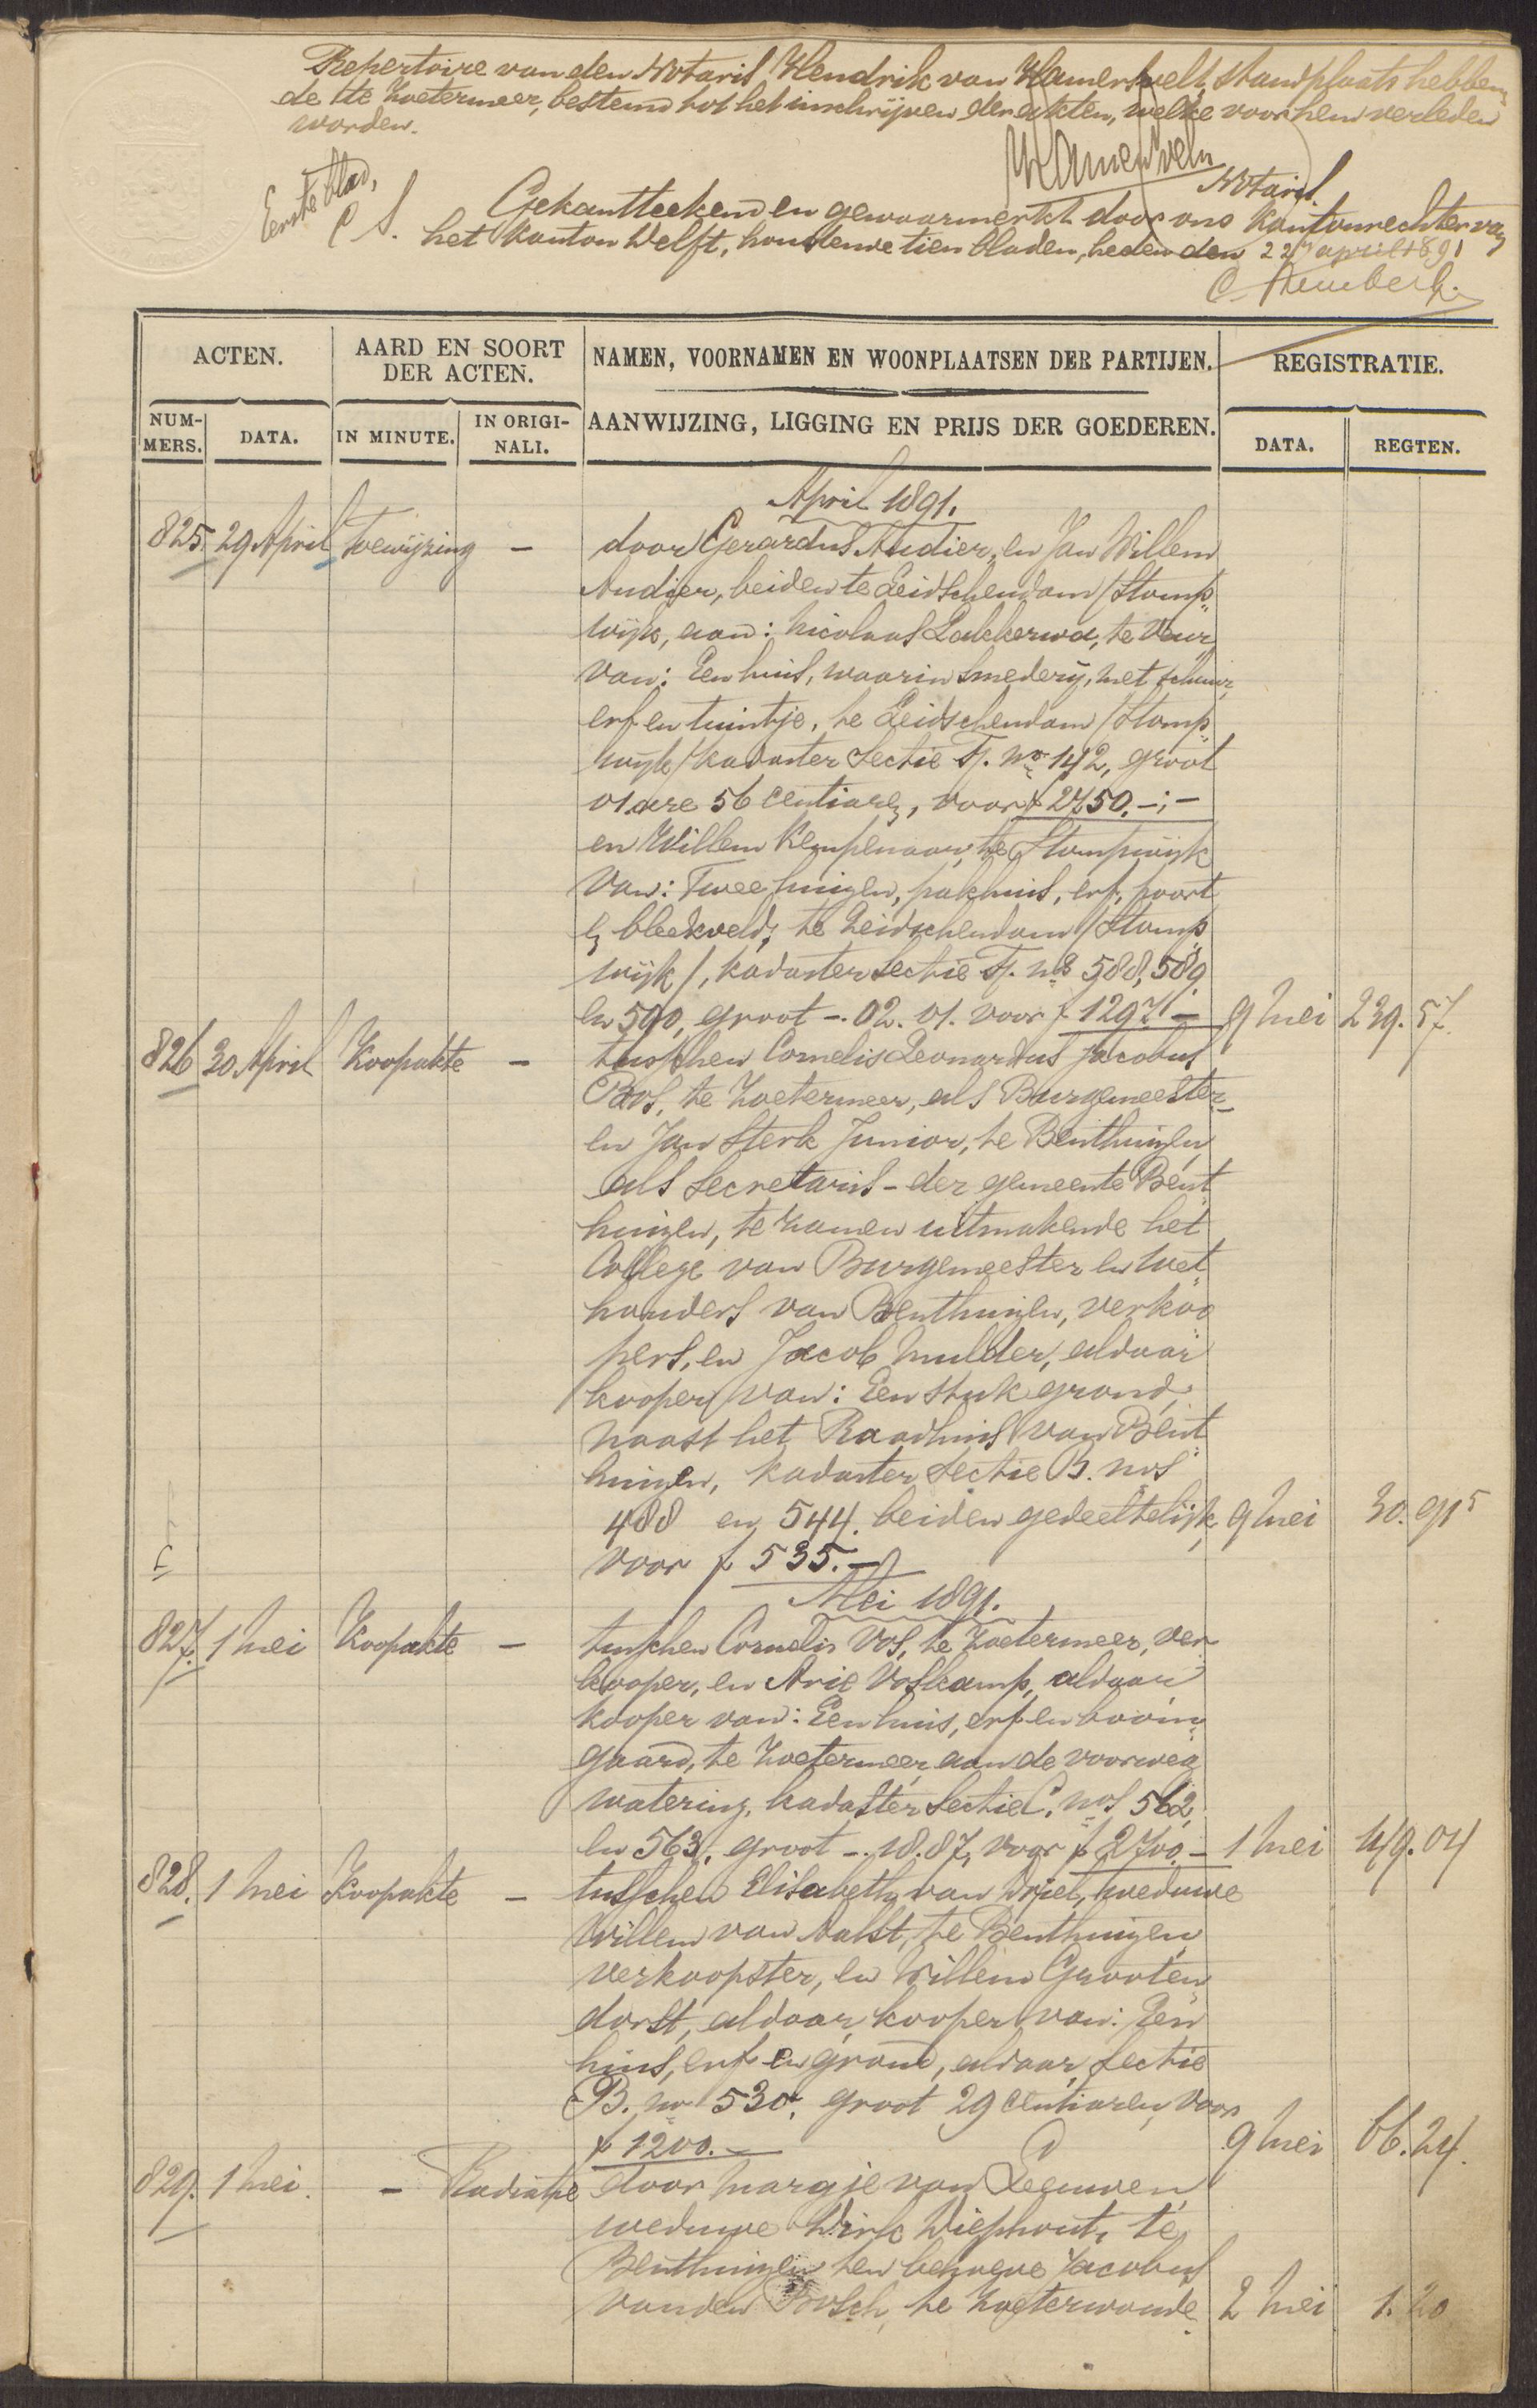 Repertoire van den Notaris Hendrik van Hamersvelt, standplaats hebben„
de te Zoetermeer, bestemd tot het inschrijven der akten, welke voor hem verleden
worden.
Notaris.
Eerste blad,
C S.
Gekantteekend en gewaarmerkt door ons Kantonrechter van
het Kanton Delft, houdende tien bladen, heden den 22 april 1891
ACTEN.
AARD EN SOORT
DER ACTEN.
NAMEN, VOORNAMEN EN WOONPLAATSEN DER PARTIJEN.
REGISTRATIE.
NUM-
MERS.
DATA.
IN MINUTE.
IN ORIGI-
NALI.
AANWIJZING, LIGGING EN PRIJS DER GOEDEREN.
DATA.
REGTEN.
April 1891.
825. 29 April Toewijzing — door Gerardus Audier, en Jan Willem
Audier, beiden te Leidschendam /Stomp„
wijk, aan: Nicolaas Lakkerwa, te Veur,
van: Een huis, waarin smederij, met schuur,
erf en tuintje, te Leidschendam /Stomp„
wijk/ kadaster Sectie F. no 142, groot
01 are 56 centiaren, voor f 2750.-;-
en Willem Kempenaar, te Stompwijk
van: Twee huizen, pakhuis, erf, poort
en bleekveld, te Leidschendam /Stomp„
wijk/, kadaster Sectie F. nos 588, 589
en 590, groot -. 02. 01. voor f 1297.- 9 Mei 239. 57.
826 30 April Koopakte — tusschen Cornelis Leonardus Jacobus
Bos, te Zoetermeer, als Burgemeester
en Jan Sterk Junior, te Benthuizen
als Secretaris - der gemeente Bent„
huizen, te zamen uitmakende het
College van Burgemeester en Wet„
houders van Benthuizen, verkoo„
pers, en Jacob Mulder, aldaar
kooper van: Een stuk grond,
naast het Raadhuis van Bent„
huizen, kadaster Sectie B. nos
488 en 544. beiden gedeeltelijk, 9 Mei 30. 91⁵
voor f 535.-
Mei 1891.
827. 1 Mei Koopakte — tusschen Cornelis Vos, te Zoetermeer, ver„
kooper, en Arie Voskamp, aldaar
kooper van: Een huis, erf en boom„
gaard, te Zoetermeer aan de voorweg
watering, kadaster Sectie C. nos 562
en 563, groot -. 18. 87, voor f 2700.- 1 Mei 49. 04
828. 1 Mei Koopakte — tusschen Elisabeth van Driel, weduwe
Willem van Aalst, te Benthuizen
verkoopster, en Willem Grooten„
dorst, aldaar kooper van: Een
huis, erf en grond, aldaar, Sectie
B. no 530, groot 29 centiaren, voor
f 1200.- 9 Mei 66. 24.
829. 1 Mei. — Radiatie door Margje van Leeuwen
weduwe Dirk Diephout, te
Benthuizen ten behoeve Jacobus
van den Bosch, te Zoeterwoude. 2 Mei 1. 20